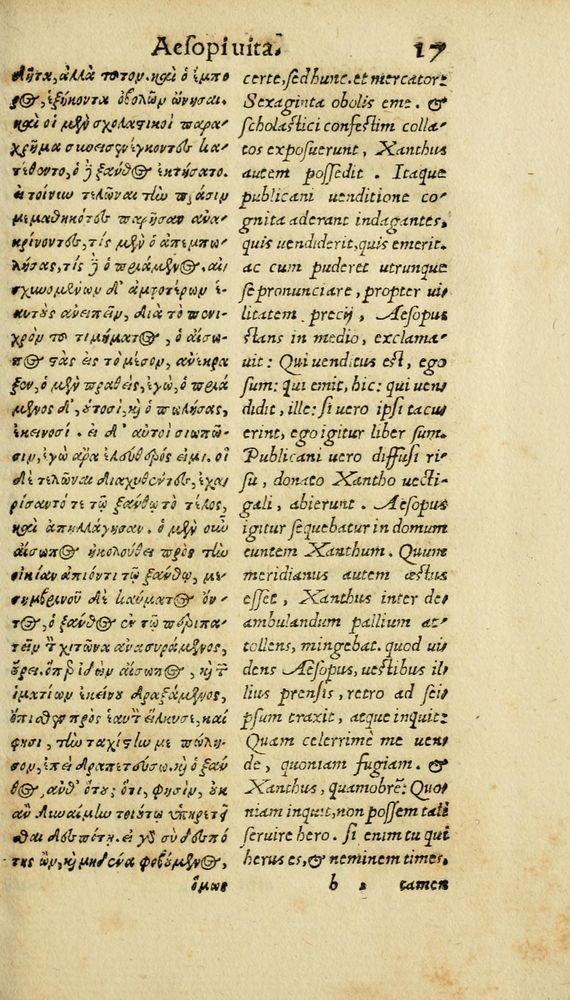 Aesopi uita. 17
λῆτα, ἀλλὰ τοτον. καὶ ὁ ἔμπο
ρος, ἑξήκοντα ὀβολῶν ὤνησαι.
καὶ οἱ μὲν σχολαστικοὶ παρα
χρῆμα συνεισενεγκόντες κα-
τέθεντο, ὁ δὲ ξάνθος ἐκτήσατο.
οἱ τοίνυν τελῶναι τὴν πρᾶσιν
μεμαθηκότες παρῆσαν ἀνα-
κρίνοντες, τίς μὲν ὁ ἀπεμπω-
λήσας, τίς δὲ ὁ πριάμενος. αἰ-
σχυνομένων δ' ἀμφοτέρων ἑ-
αυτοὺς ἀνειπεῖν, διὰ τὸ πενι-
χρὸν τοῦ τιμήματος, ὁ αἴσω-
πος στὰς ἐς τὸ μέσον, ἀνέκρα
ξεν, ὁ μὲν πραθεὶς, ἐγὼ, ὁ πριά
μενος δ', οὑτοσὶ, καὶ ὁ πωλήσας,
ἐκεινοσί. εἰ δ' αὐτοὶ σιωπῶ-
σιν, ἐγὼ ἄρα ἐλεύθερός εἰμι. οἱ
δὲ τελῶναι διαχυθέντες, ἐχα-
ρίσαντό τε τῷ ξάνθῳ τὸ τέλος,
καὶ ἀπηλλάγησαν. ὁ μὲν οὖν
αἴσωπος ἠκολούθει πρὸς τὴν
οἰκίαν ἀπιόντι τῷ ξάνθῳ, με-
σημβρινοῦ δὲ καύματος ὄν-
τος, ὁ ξάνθος ἐν τῷ περιπα-
τεῖν τὸν χιτῶνα ἀνασυράμενος,
οὔρει. ὅπερ ἰδὼν αἴσωπος, καὶ τ
ἱματίων ἐκείνου δραξάμενος,
ὄπισθεν πρὸς ἑαυτὸν εἵλκυσε, καί
φησι, τὴν ταχίστην με πώλη-
σον, ἐπεὶ δραπετεύσω. καὶ ὁ ξάν
θος, ἀνθ' ὅτου; ὅτι, φησὶν, οὐκ
ἂν δυναίμην τοιούτῳ ὑπηρετεῖ
σθαι δεσπότῃ. εἰ γὰρ σὺ δεσπό
της ὢν, καὶ μηδένα φοβούμενος,
ὅμως
certe, sed hunc. et mercator:
Sexaginta obolis eme. &
scholastici confestim colla-
tos exposuerunt, Xanthus
autem possedit. Itaque
publicani uenditione co-
gnita aderant indagantes,
quis uendiderit, quis emerit.
ac cum puderet utrunque
se pronunciare, propter ui-
litatem precij, Aesopus
stans in medio, exclama-
uit: Qui uenditus est, ego
sum: qui emit, hic: qui uen
didit, ille: si uero ipsi tacu
erint, ego igitur liber sum.
Publicani uero diffusi ri-
su, donato Xantho uecti-
gali, abierunt. Aesopus
igitur sequebatur in domum
euntem Xanthum. Quum
meridianus autem æstus
esset, Xanthus inter de
ambulandum pallium at-
tollens, mingebat. quod ui
dens Aesopus, uestibus il-
lius prensis, retro ad sei-
psum traxit, atque inquit:
Quam celerrimè me uen
de, quoniam fugiam. &
Xanthus, quamobrē: Quo-
niam inquit, non possem tali
seruire hero. si enim tu qui
herus es, & neminem times,
b tamen